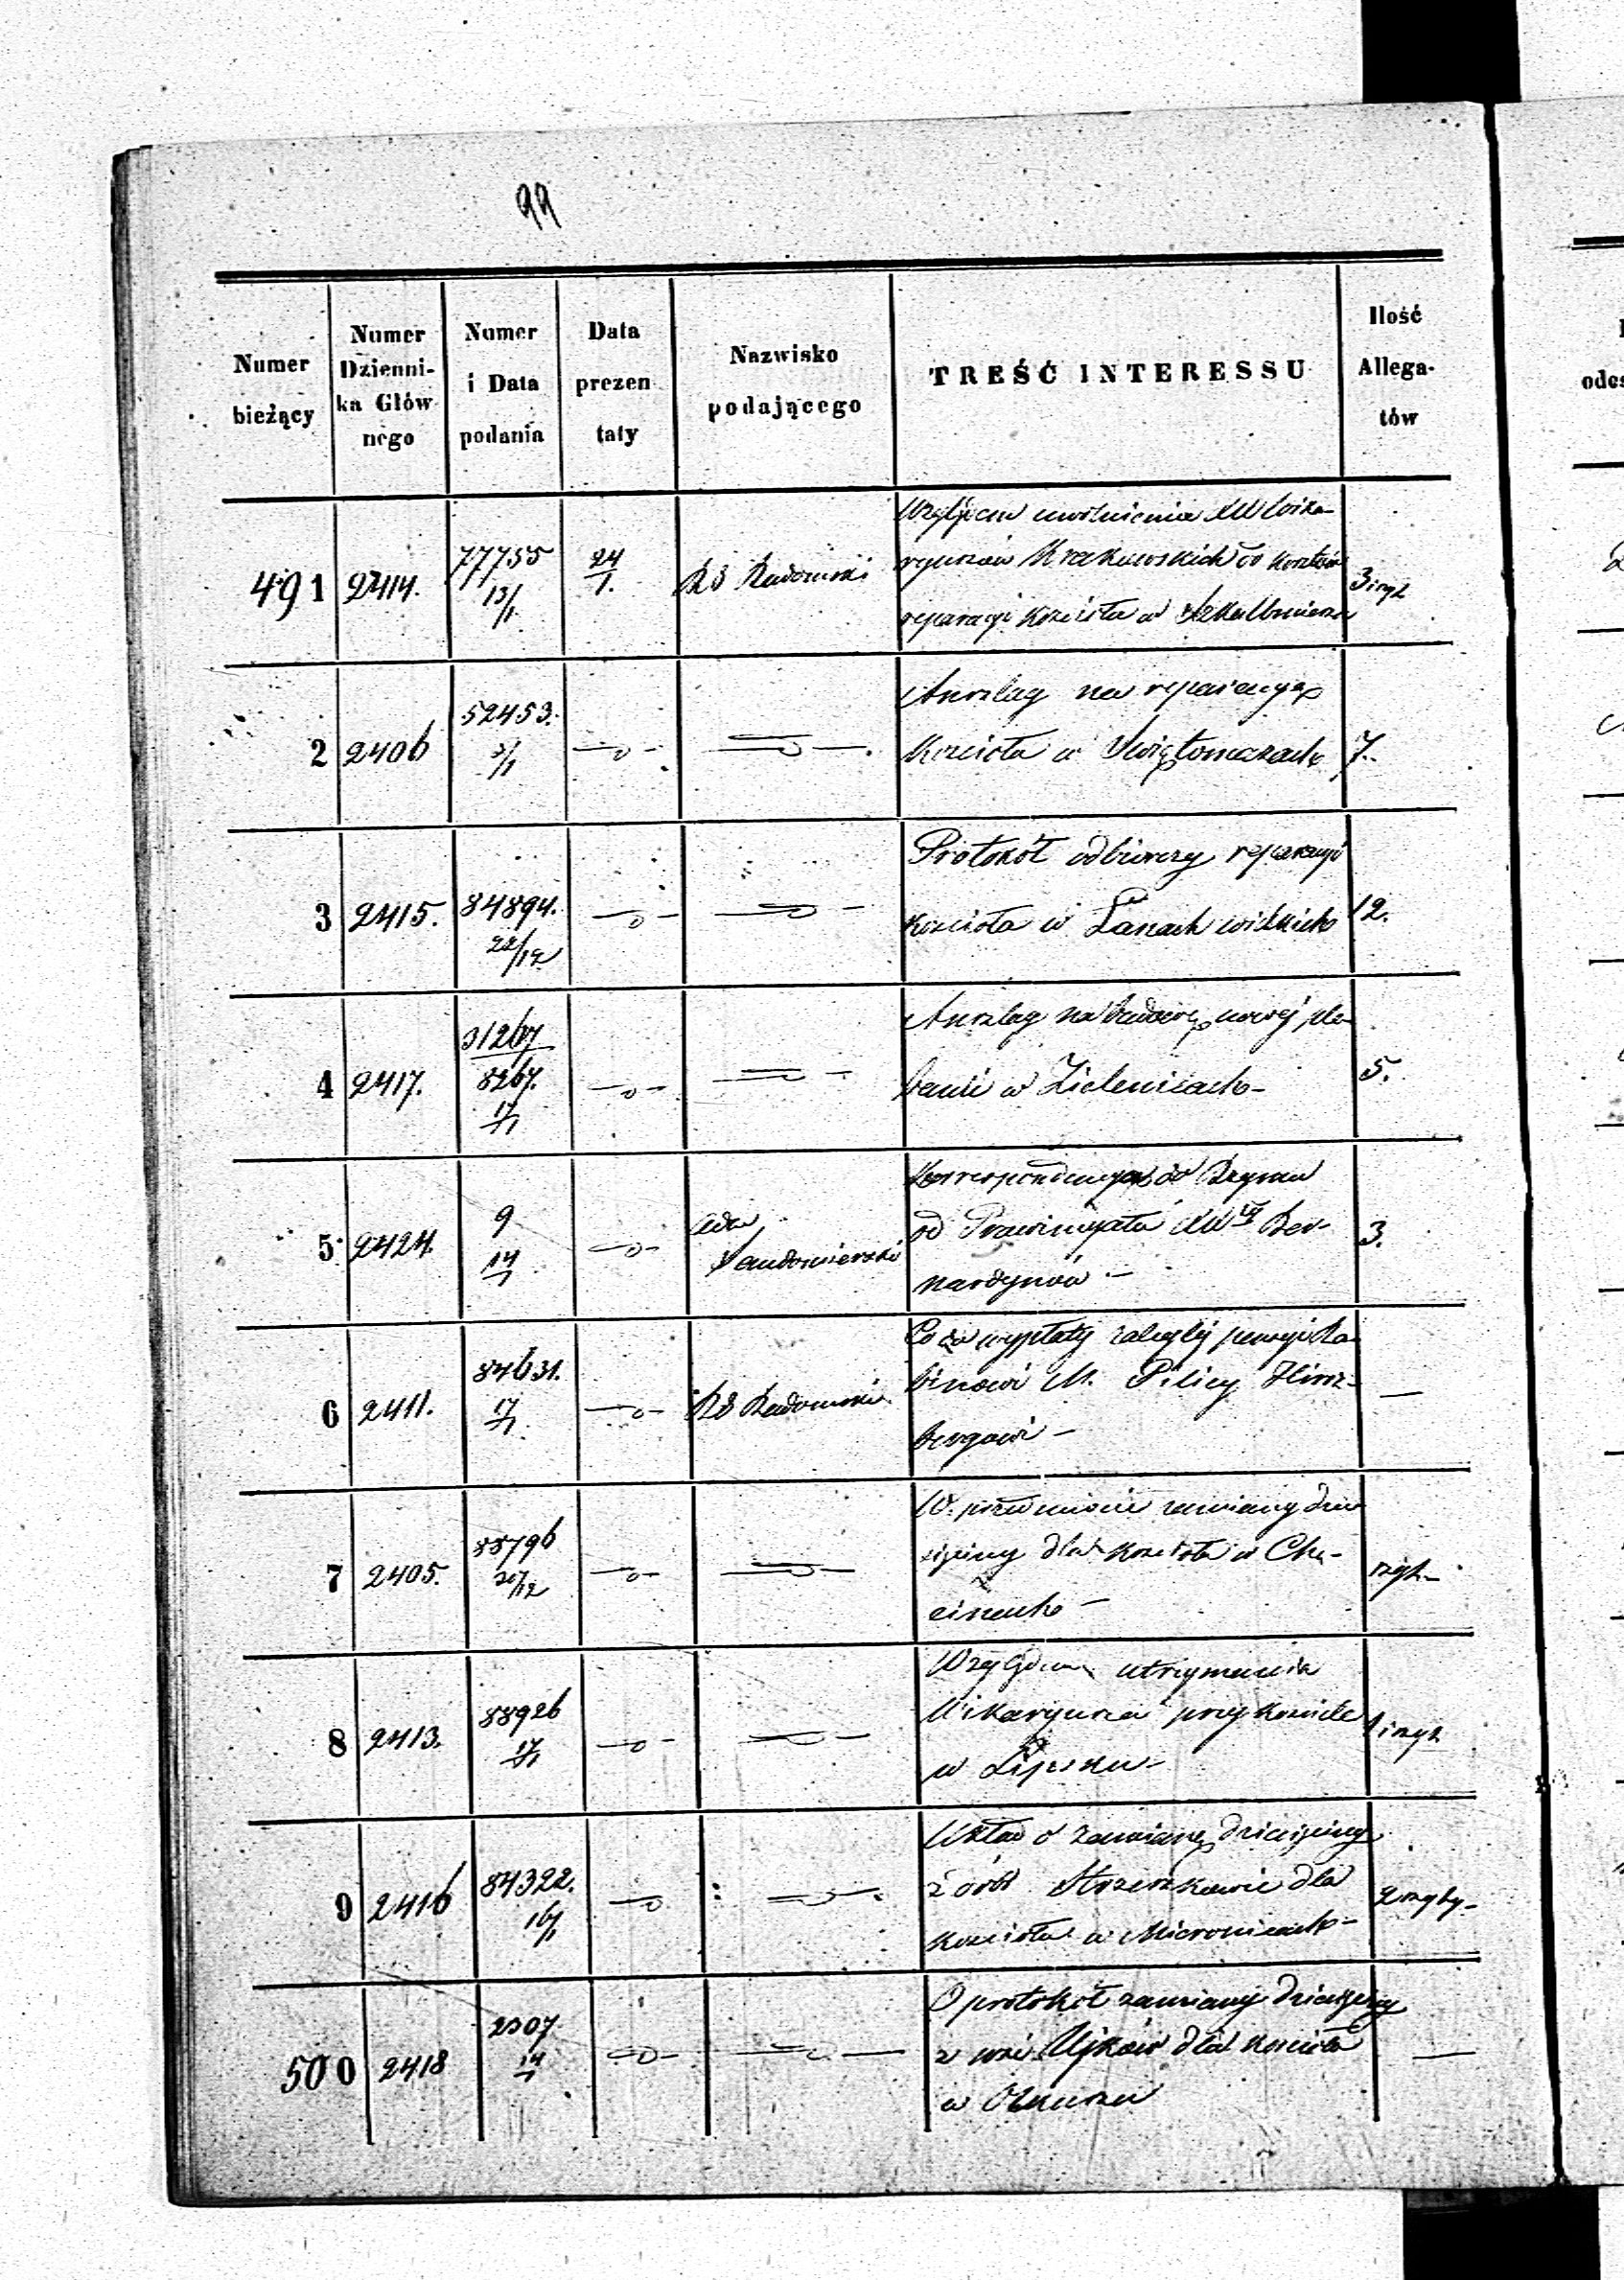 99
Numer bieżący
Numer Dzienni- ka Głów nego
Numer i Data podania
Data prezen taty
Nazwisko podającego
TREŚĆ INTERESSU
Ilość Allega- tów
491 2414. 77755 13/1 24/1. RG Radomski
Względem uwolnienia XX Wika-
ryuszów Krakowskich od kosztów
reparacyi kościoła w Szkalbmierzu
3 i
2 2406 52453. 3/1
Anszlag na reparacyą
kościoła w Świętomarzach
7.
3 2415. 84894. 22/12
Protokół odbiorczy reparacyi
kościoła w Łanach wielkich
12.
4 2417. 31267 8267. 17/1
Anszlag na budowę nowej ple-
banii w Zielenicach
5.
5 2424. 9 14/1 Adm Sandomierski
Korrespondencya do Rzymu
od Prowincyała XX Ber-
nardynów
3.
6 2411. 84631. 17/1 RG Radomski
Co do wypłaty zaległej pensyi Ra-
binowi M. Pilicy Hirsz-
bergowi
—
7 2405. 88796 20/12
W przedmiocie zamiany dzie
sięciny dla kościoła w Chę-
cinach
8 2413. 88926 17/1
Względem utrzymania
Wikaryusza przy kościele
w Lipsku
1 i
9 2416 84322. 16/1
Układ o zamianę dziesięciny
z dóbr dla
kościoła w Mieronicach
2
500 2418 2307 14/1
O protokół zamiany dziesięciny
z wsi Ujków dla kościoła
w Olkuszu
—